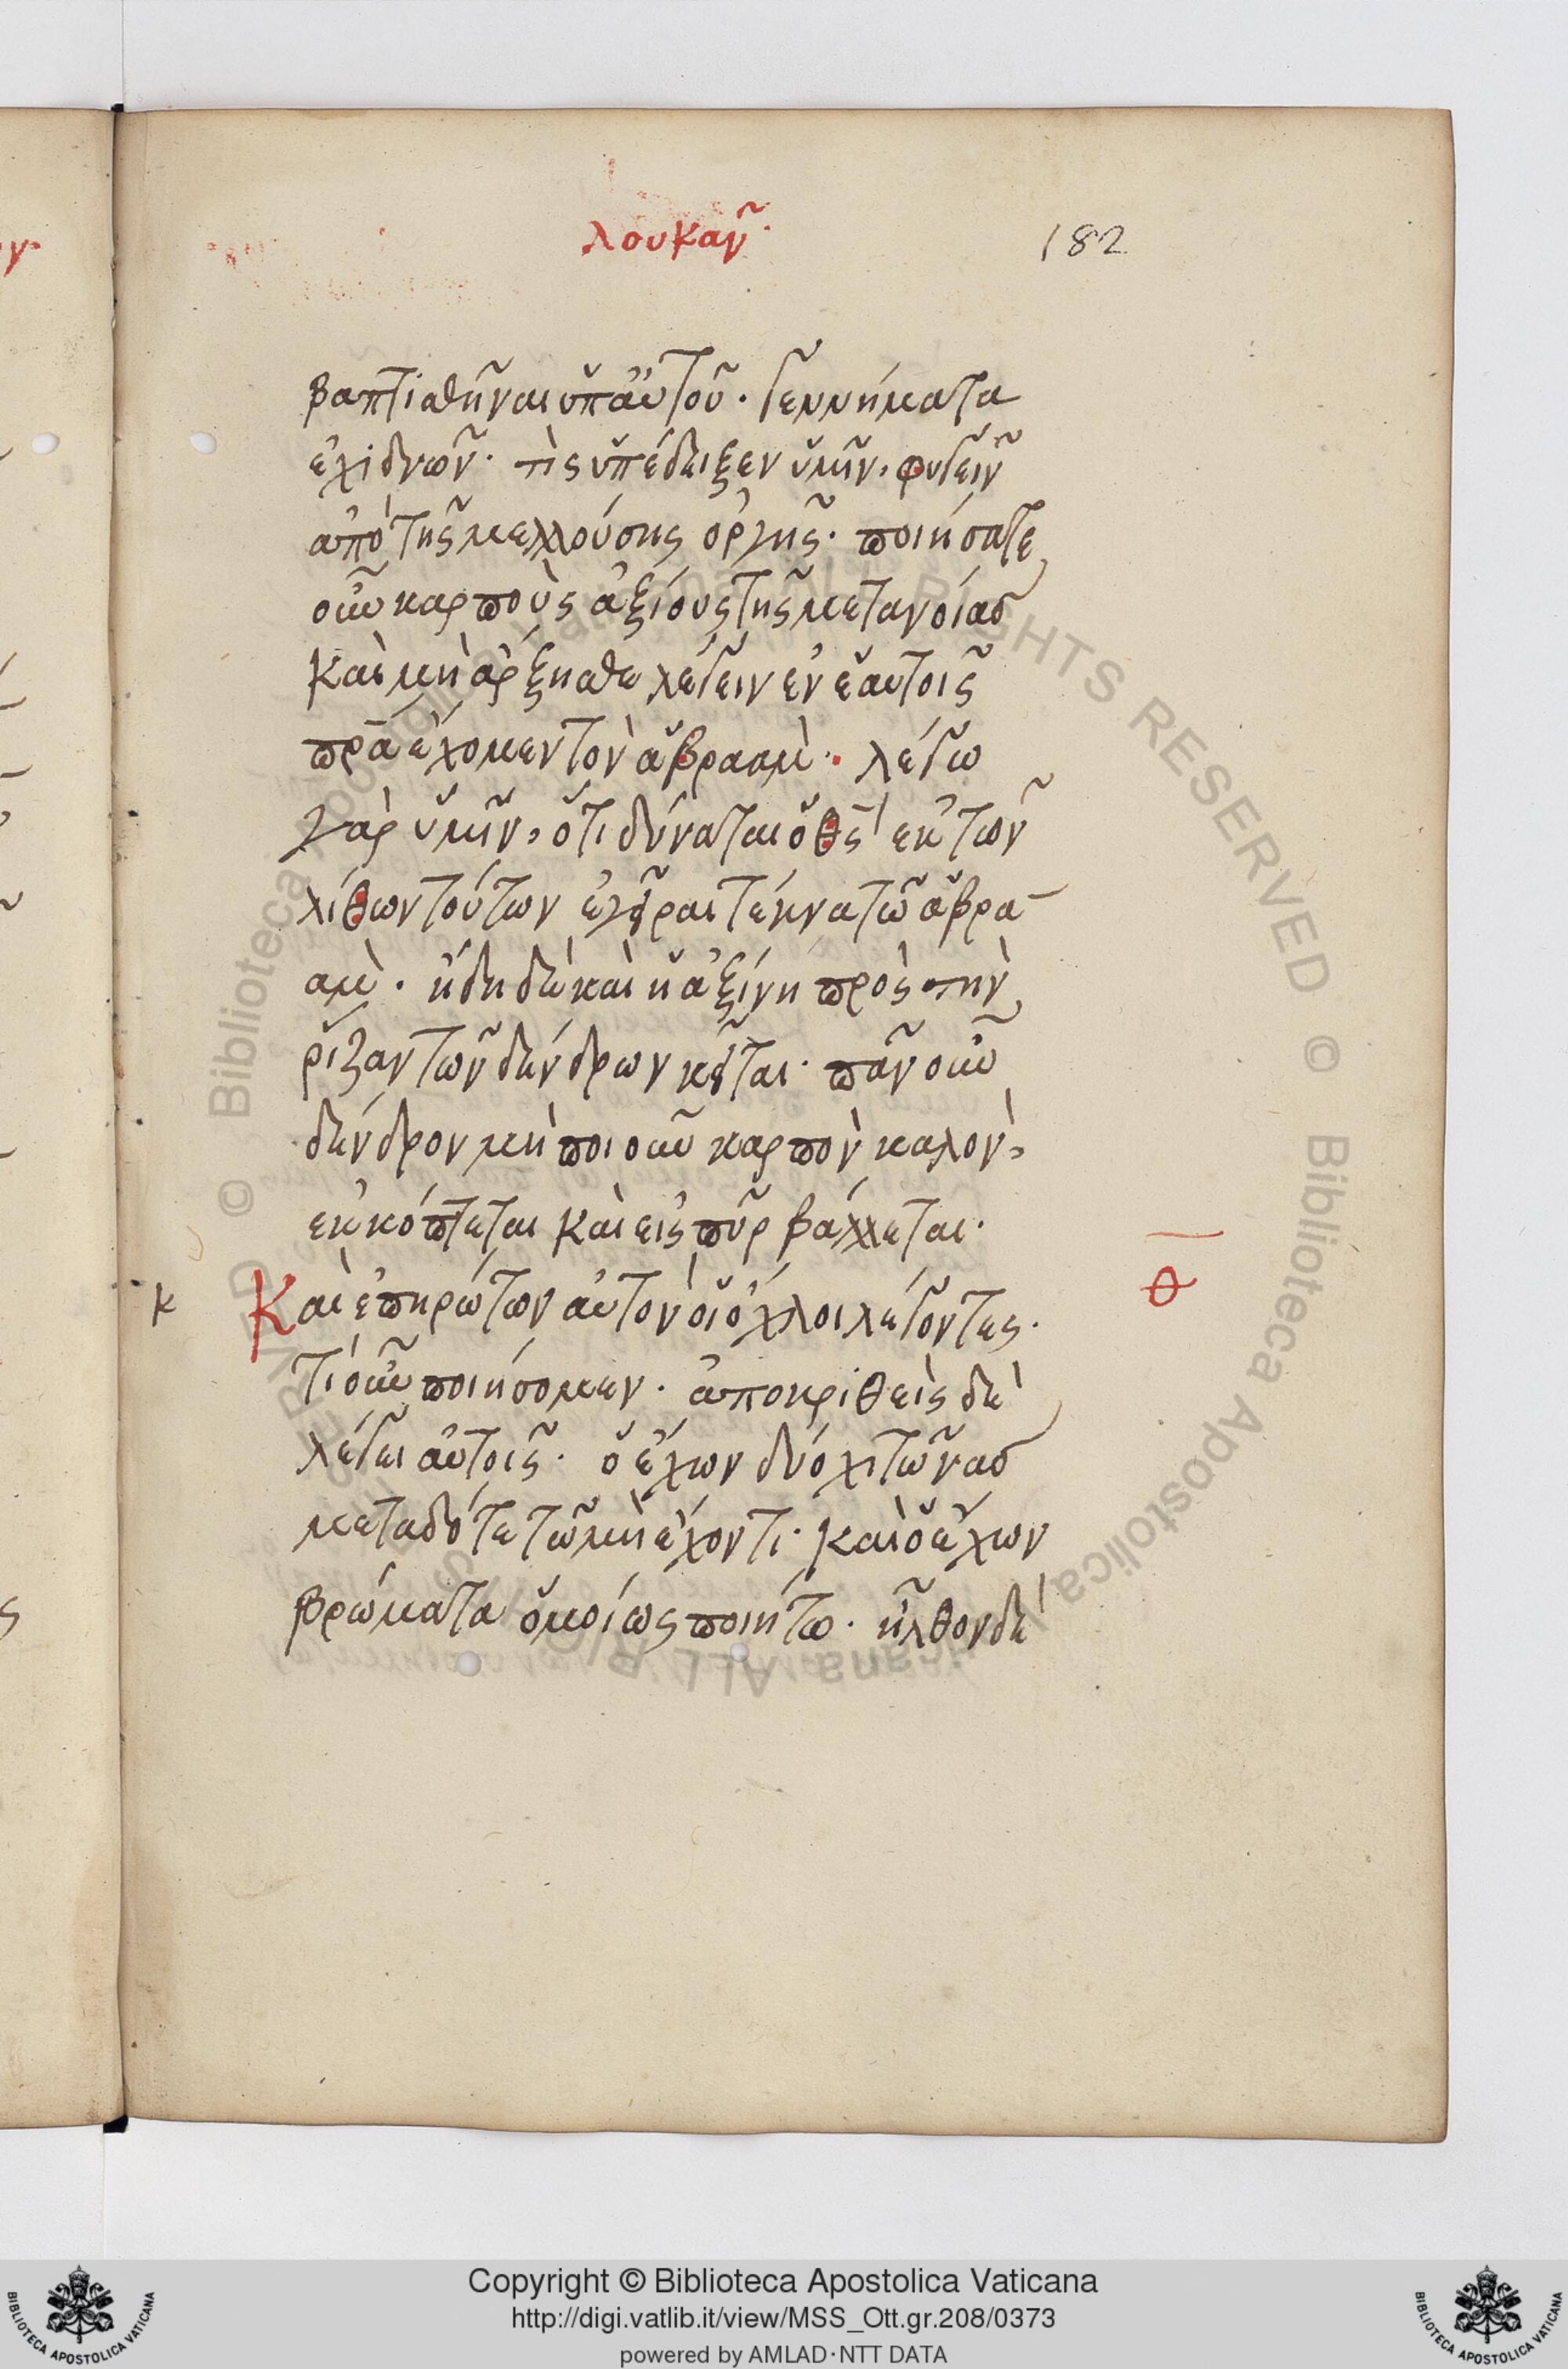 λουκαν῀
182
βαπτισθῆναι ὑπ αὐτοῦ· γεννήματα
ἐχιδνων῀· τὶς ὑπέδειξεν ὑμῖν, φυγειν῀
ἀπὸ τῆς μελλούσης ὀργῆς· ποιήσατε
οὖν καρποὺς ἀξίους τῆς μετανοίας
καὶ μὴ ἄρξησθε λέγειν ἐν ἑαυτοῖς
πρ̅α ἔχομεν τὸν ἀβρααμ̀· λέγω
γὰρ ὑμῖν, ὅτι δύναται ὁ θ̅ς ἐκ τῶν
λίθων τούτων ἐγεῖραι τέκνα τῶ ἀβρα-
αμ̀· ἤδη δὲ καὶ ἡ ἀξίνη πρὸς τὴν
ρίζαν τῶν δένδρων κεῖται· πᾶν οὖν
δένδρον μὴ ποιοῦν καρπὸν καλὸν,
ἐκκόπτεται καὶ εἰς πῦρ βάλλεται·
κ Καὶ ἐπηρώτων αὐτὸν οἱ ὄχλοι λέγοντες· θ̅
τί οὖν ποιήσομεν· ἀποκριθεὶς δὲ
λέγει αὐτοῖς· ὁ ἔχων δύο χιτῶνας
μεταδότε τῶ μὴ ἔχοντι· καὶ ὁ ἔχων
βρώματα ὁμοίως ποιήτω· ἦλθον δὲ
Copyright © Biblioteca Apostolica Vaticana
http://digi.vatlib.it/view/MSS_Ott.gr.208/0373
powered by AMLAD·NTT DATA
BIBLIOTECA APOSTOLICA VATICANA
BIBLIOTECA APOSTOLICA VATICANA